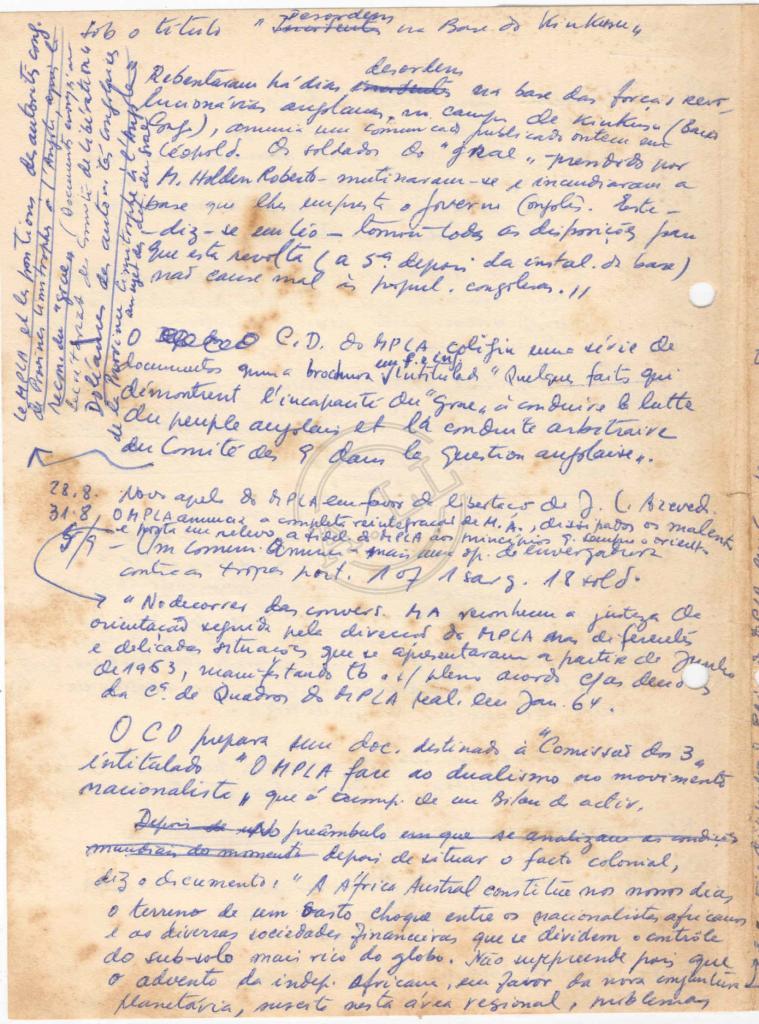 Sob o titulo "desordens na Base de Kinkuzu"
Rebentaram há dias desordens na base das forças revo-
lucionárias angolanas, no campo de Kinkuzu (Baixo
Congo), anuncia um comunicado publicado ontem em
Léopold. Os soldados do "grae" presidido por
M. Holden Roberto - mutinaram-se e incendiaram a
base que lhes empresta o governo Congolês. Este -
diz-se em Léo - tomou todas as disposições para
que esta revolta (a 5ª depois da instal. da base)
não cause mal às popul. congolesas."
Le MPLA et les positions des autorités cong.
de Provinces limitrophes à l'Angola après la
reconn. du "grae" (Documents
Secretariat du Comité de libération
Doléances des autorités congolaises
de la Province limitrophe à l'Angola
au sujet des du Grae
O C.D. do MPLA, coligiu uma série de
documentos numa brochura intitulada "Quelques faits qui
démontrent l'incapacité du "Grae" à conduire la lutte
du peuple angolais et la conduite arbitraire
du Comité des 9 dans la question angolaise".
28.8. Novo apelo do MPLA em favor da libertação de J. C. Azevedo.
31.8. O MPLA anuncia a completa reintegração de M. A., dissipados os malent.
e posta em relevo a fidel. do MPLA aos princípios q. sempre o orient.
5/9 - Um comun. anuncia mais uma op. de envergadura
contra as tropas port. 1 of 1 sarg. 18 sold.
"No decorrer das convers. MA reconheceu a justeza da
orientação seguida pela direcção do MPLA nas diferentes
e delicadas situações que se apresentaram a partir de Junho
de 1963, manifestando tb. o s/ pleno acordo c/ as decisões
da Cª. de Quadros do MPLA real. em Jan. 64.
O CD prepara um doc. destinado à "Comissão dos 3"
intitulado "O MPLA face ao dualismo no movimento
nacionalista" que é acomp. de um Bilan de activ.
Depois de um preâmbulo em que se analizam as condições
mundiais do momento depois de situar o facto colonial,
diz o documento: "A África Austral constitue nos nossos dias
o terreno de um vasto choque entre os nacionalistas africanos
e as diversas sociedades financeiras que se dividem o contrôle
do sub-solo mais rico do globo. Não surpreende pois que
o advento da indep. africana, em favor da nova conjuntura
planetária, suscite nesta área regional, problemas